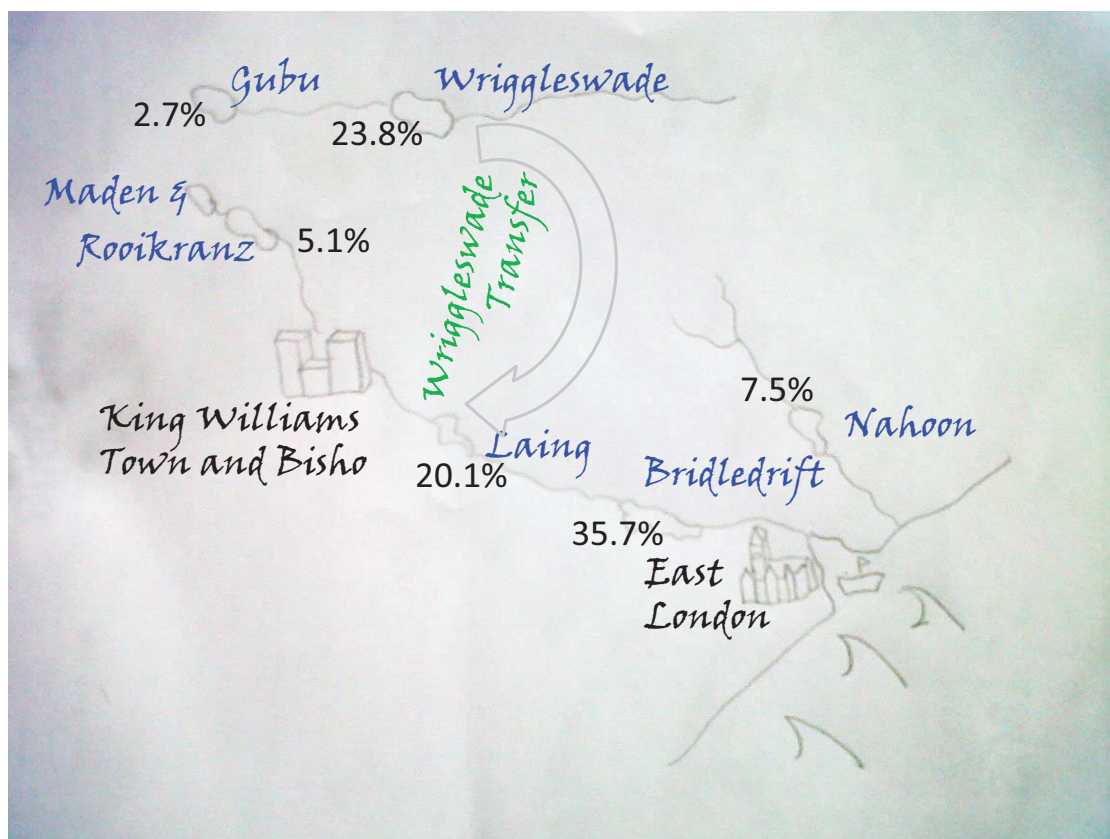 Gubu
Wriggleswade
2.7%
23.8%
Maden &
Rooikranz
5.1%
Wriggleswade
Transfer
King Williams
Town and Bisho
Laing
20.1%
7.5%
Nahoon
Bridledrift
35.7%
East
London